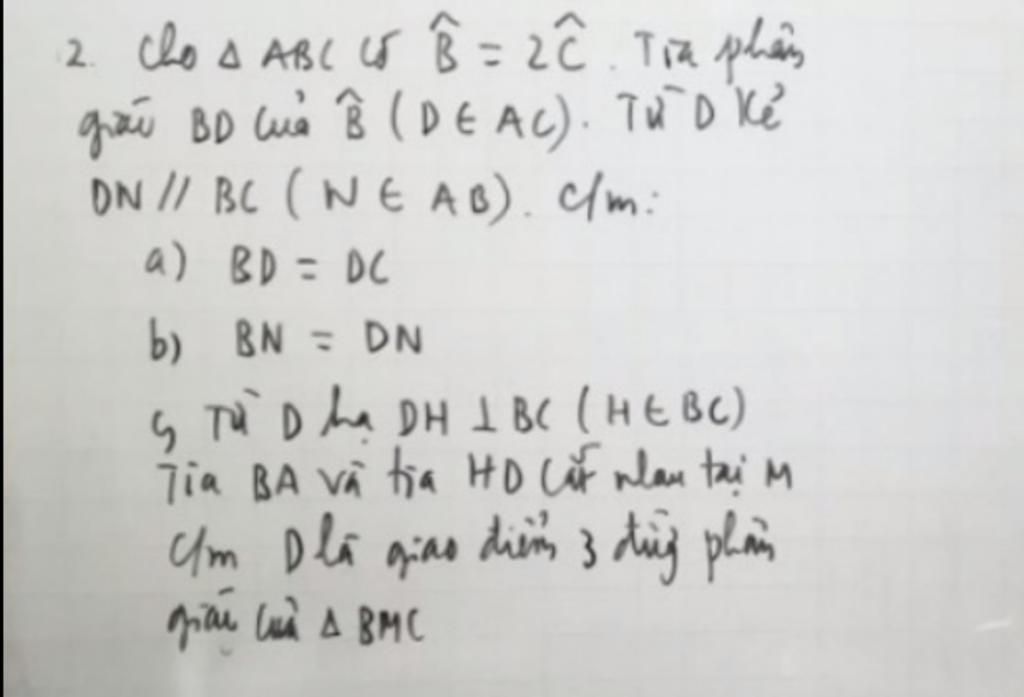 2. Cho Δ ABC có B̂ = 2Ĉ. Tia phân
giác BD của B̂ (D ∈ AC). Từ D kẻ
DN // BC (N ∈ AB). C/m:
a) BD = DC
b) BN = DN
c) Từ D hạ DH ⊥ BC (H ∈ BC)
Tia BA và tia HD cắt nhau tại M
C/m D là giao điểm 3 đường phân
giác của Δ BMC